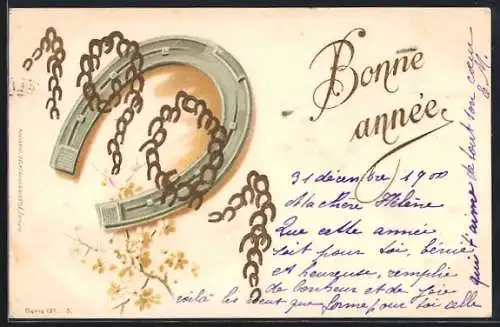 Bonne
année
31 décembre 1900
Ma chère Hélène
Que cette année
soit pour toi, bénie
et heureuse, remplie
de bonheur et de joie
voilà les vœux que forme pour toi celle
qui t'aime de tout son cœur
E. M.